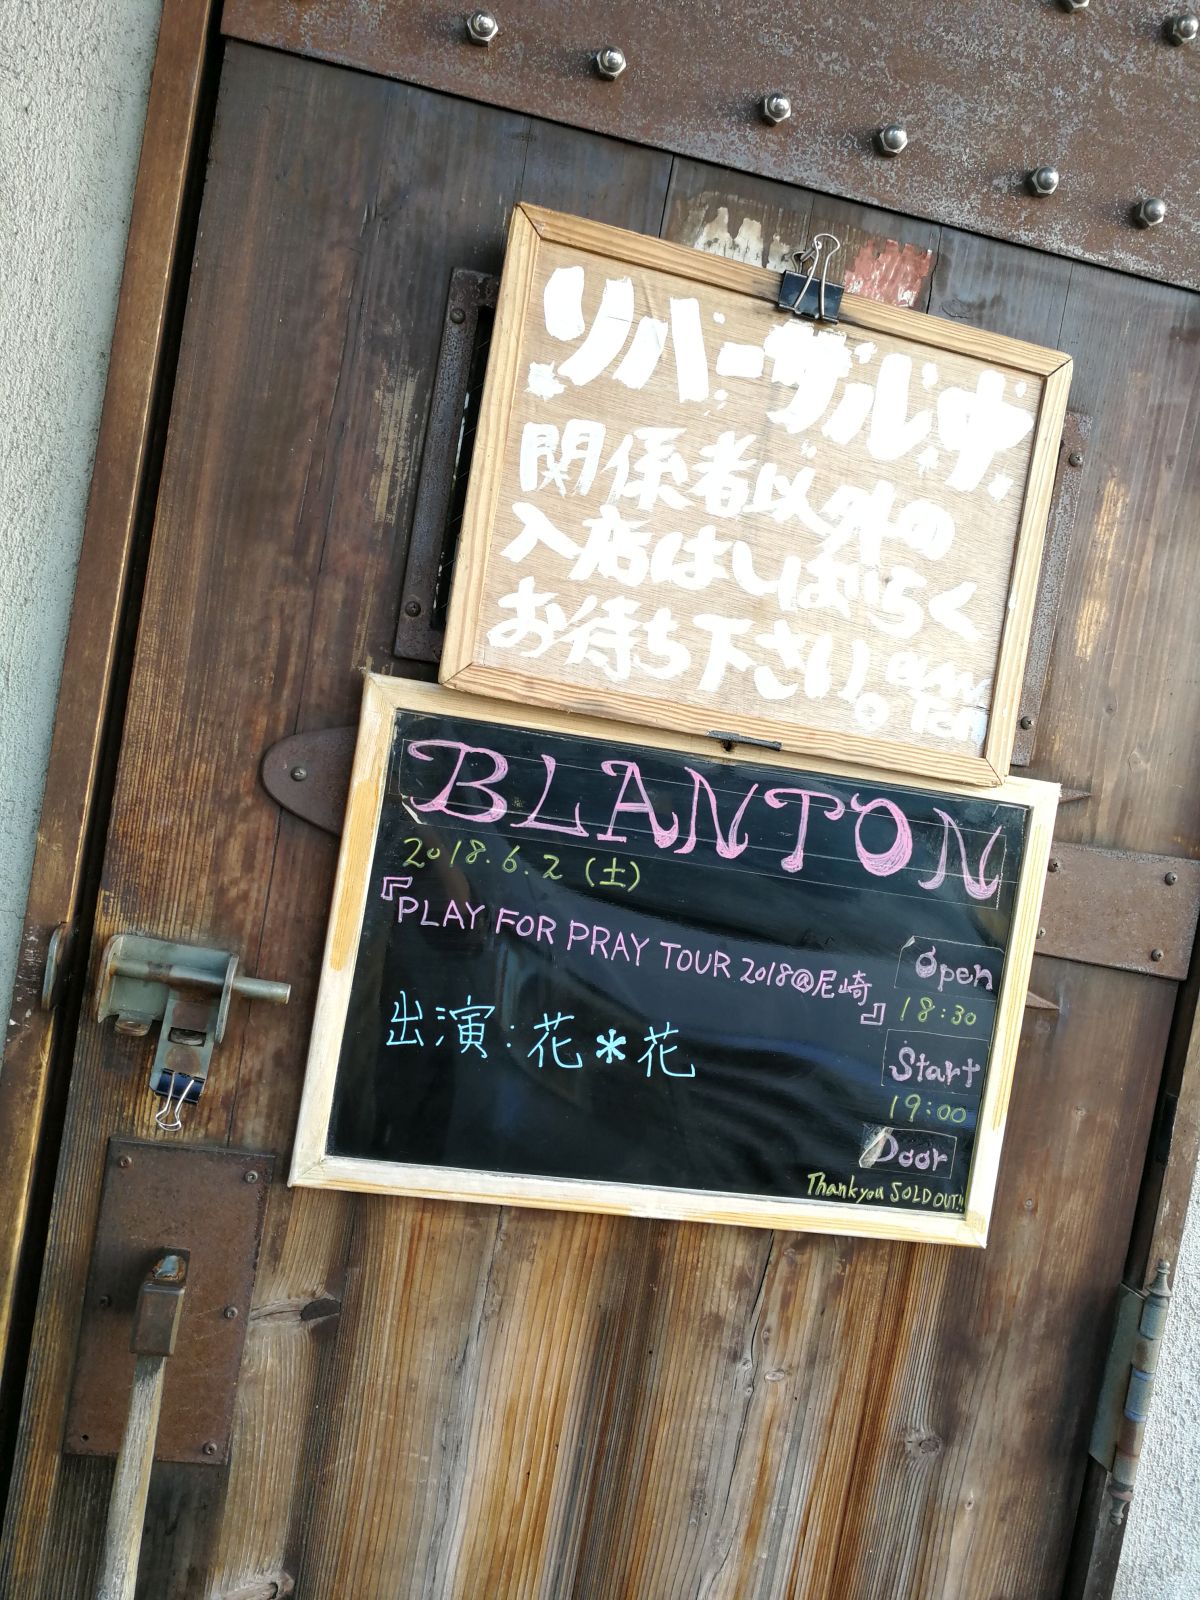 リハーザル中.
関係者以外の
入店はしばらく
お待ち下さい。
BLANTON
2018.6.2(土)
『PLAY FOR PRAY TOUR 2018@尼崎』
出演:花*花
Open
18:30
Start
19:00
Door
Thank you SOLD OUT!!